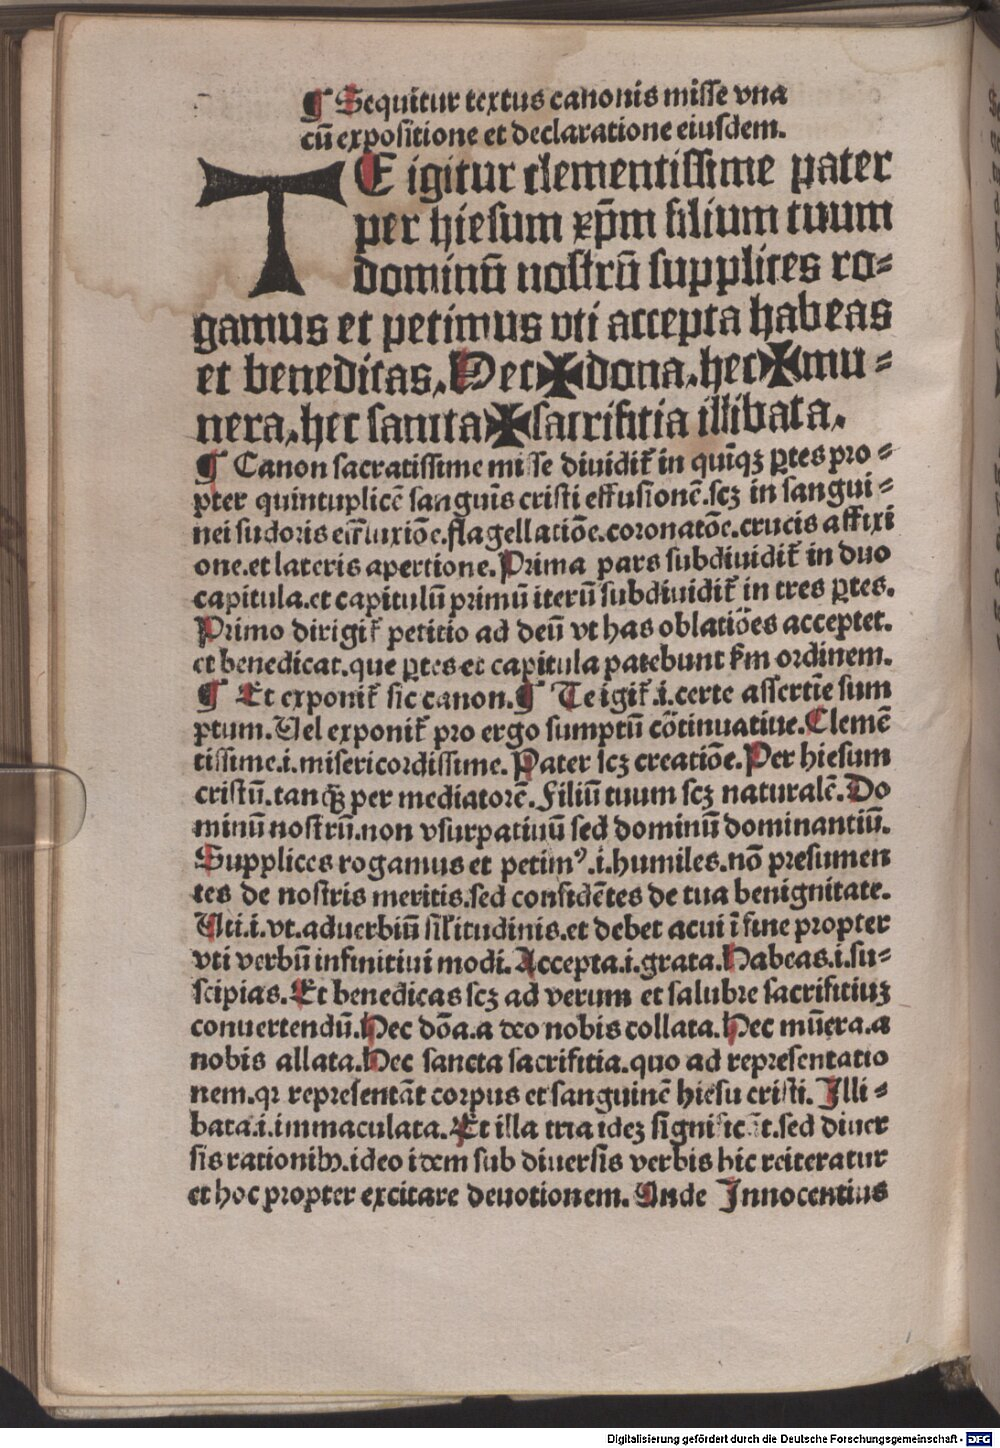 ¶ Sequitur textus canonis misse vna
cū expositione et declaratione eiusdem.
TE igitur clementissime pater
per hiesum xp̄m filium tuum
dominū nostrū supplices ro=
gamus et petimus vti accepta habeas
et benedicas. Hec ✠ dona, hec ✠ mu=
nera, hec sancta ✠ sacrificia illibata.
¶ Canon sacratissime misse diuidit̃ in quīqꝫ ꝑtes pro=
pter quintuplicē sanguīs cristi effusionē.scꝫ in sangui=
nei sudoris efluxiōe.flagellatiōe.coronatōe.crucis affixi
one.et lateris apertione. Prima pars subdiuidit̃ in duo
capitula.et capitulū primū iterū subdiuidit̃ in tres ꝑtes.
Primo dirigit̃ petitio ad deū vt has oblatiōes acceptet.
et benedicat.que ꝑtes et capitula patebunt ẜm ordinem.
¶ Et exponit̃ sic canon. ¶ Te igit̃.i.certe assertīe sum
ptum. Uel exponit̃ pro ergo sumptū cōtinuatiue. Clemē
tissime.i.misericordissime. Pater scꝫ creatiōe. Per hiesum
cristū.tanq̄ꝫ per mediatorē. Filiū tuum scꝫ naturalē. Do
minū nostrū.non vsurpatiuū sed dominū dominantiū.
Supplices rogamus et petimꝰ.i.humiles.nō presumen
tes de nostris meritis.sed confidētes de tua benignitate.
Uti.i.vt.aduerbiū sil̓itudinis.et debet acui ī fine propter
vti verbū infinitiui modi. Accepta.i.grata. Habeas.i.su=
scipias. Et benedicas scꝫ ad verum et salubre sacrificiuꝫ
conuertendū. Hec dōa.a deo nobis collata. Hec mūera.a
nobis allata. Hec sancta sacrificia.quo ad representatio
nem.qꝛ representāt corpus et sanguinē hiesu cristi. Illi=
bata.i.immaculata. Et illa tria ideꝫ significāt.sed diuer
sis rationibꝫ.ideo idem sub diuersis verbis hic reiteratur
et hoc propter excitare deuotionem. Unde Innocentius
Digitalisierung gefördert durch die Deutsche Forschungsgemeinschaft - DFG